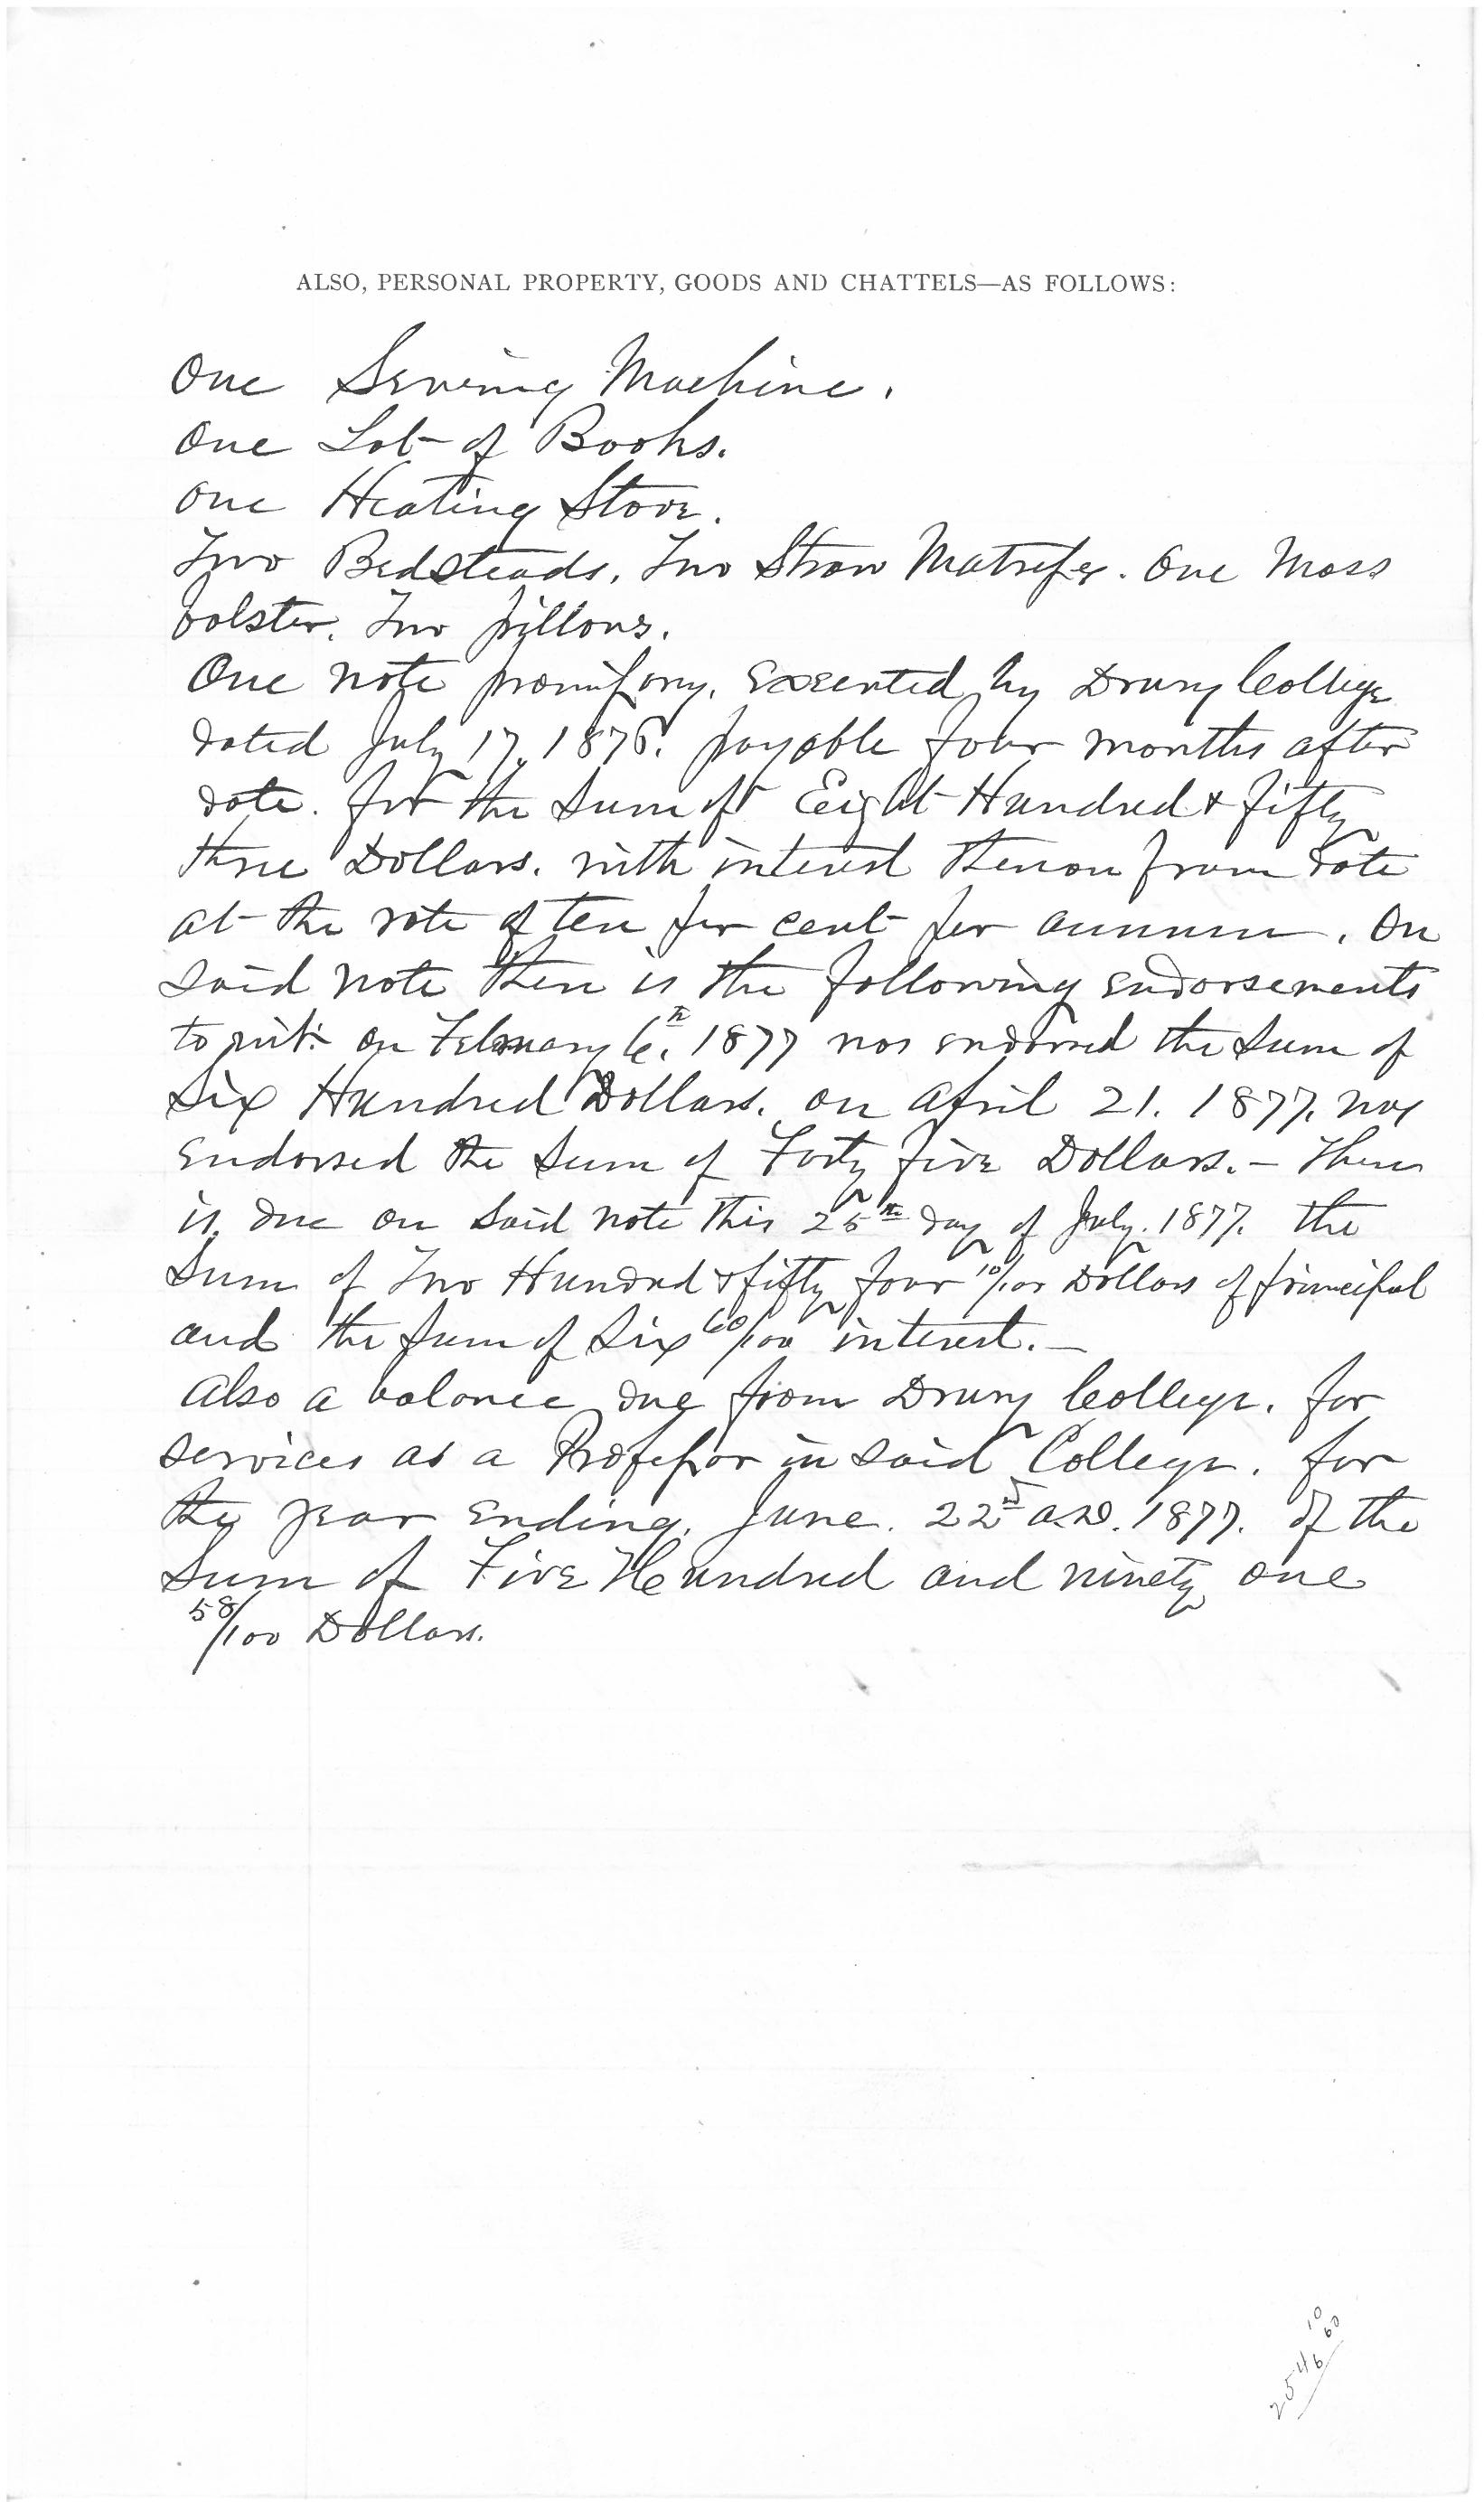 ALSO, PERSONAL PROPERTY, GOODS AND CHATTELS—AS FOLLOWS:
One Sewing Machine.
One Lot of Books.
One Heating Stove.
Two Bedsteads. Two Straw Matresses. One Moss
bolster. Two pillows.
One note promissory, executed by Drury College
dated July 17, 1876. payable four months after
date. for the sum of Eight Hundred & fifty
three Dollars. with interest thereon from date
at the rate of ten per cent per annum. On
said note there is the following endorsements
to wit: on February 6th, 1877 was endorsed the sum of
Six Hundred Dollars. on April 21. 1877. was
endorsed the sum of Forty five Dollars. — There
is due on said note this 25th day of July. 1877. the
sum of Two Hundred & fifty four 10/100 Dollars of principal
and the sum of Six 60/100 interest. —
Also a balance due from Drury College. for
services as a Professor in said College. for
the year ending. June. 22nd A.D. 1877. of the
sum of Five Hundred and ninety one
58/100 Dollars.
254 10
6 60